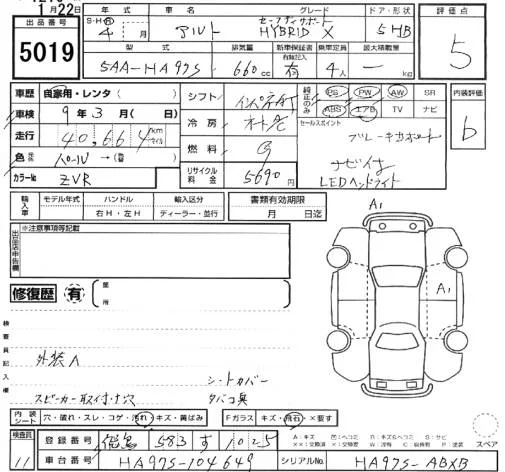 1月22日
出品番号
5019
年式 車名 グレード ドア・形状 評価点
S・H・R 4 月 アルト セーフティサポート HYBRID X 5HB 5
型式 排気量 新車保証書 乗車定員 最大積載量
有効記入
5AA-HA97S 660cc 有 4人 — kg
車歴 自家用・レンタ( )
車検 9年3月( 日)
走行 40,664 km マイル
色 パール→( )
カラーNo ZVR
シフト インパネAT
冷房 オートAC
燃料 G
リサイクル料金 5690円
純正のみ PS PW AW SR
ABS エアB TV ナビ
内装評価
b
セールスポイント
ブレーキサポート
ナビ付
LEDヘッドライト
輸入車 モデル年式 ハンドル 輸入区分
右H・左H ディーラー・並行
書類有効期限
月 日迄
出品店申告欄
※注意事項等記載
修復歴 有 箇所
A1
A1
検査員記入欄
外装A
シートカバー
スピーカー取付ナ穴 タバコ臭
内装シート 穴・破れ・スレ・コゲ・汚れ・キズ・黄ばみ
Fガラス キズ・飛石・×要す
スペア
検査員 11
登録番号 徳島 583 す 1025
A:キズ U:凹ヘコミ B:キズ&ヘコミ S:サビ
××:交換済 ×:交換要 W:波有 C:腐食有 P:塗装
車台番号 HA97S-104649
シリアルNo. HA97S-ABXB